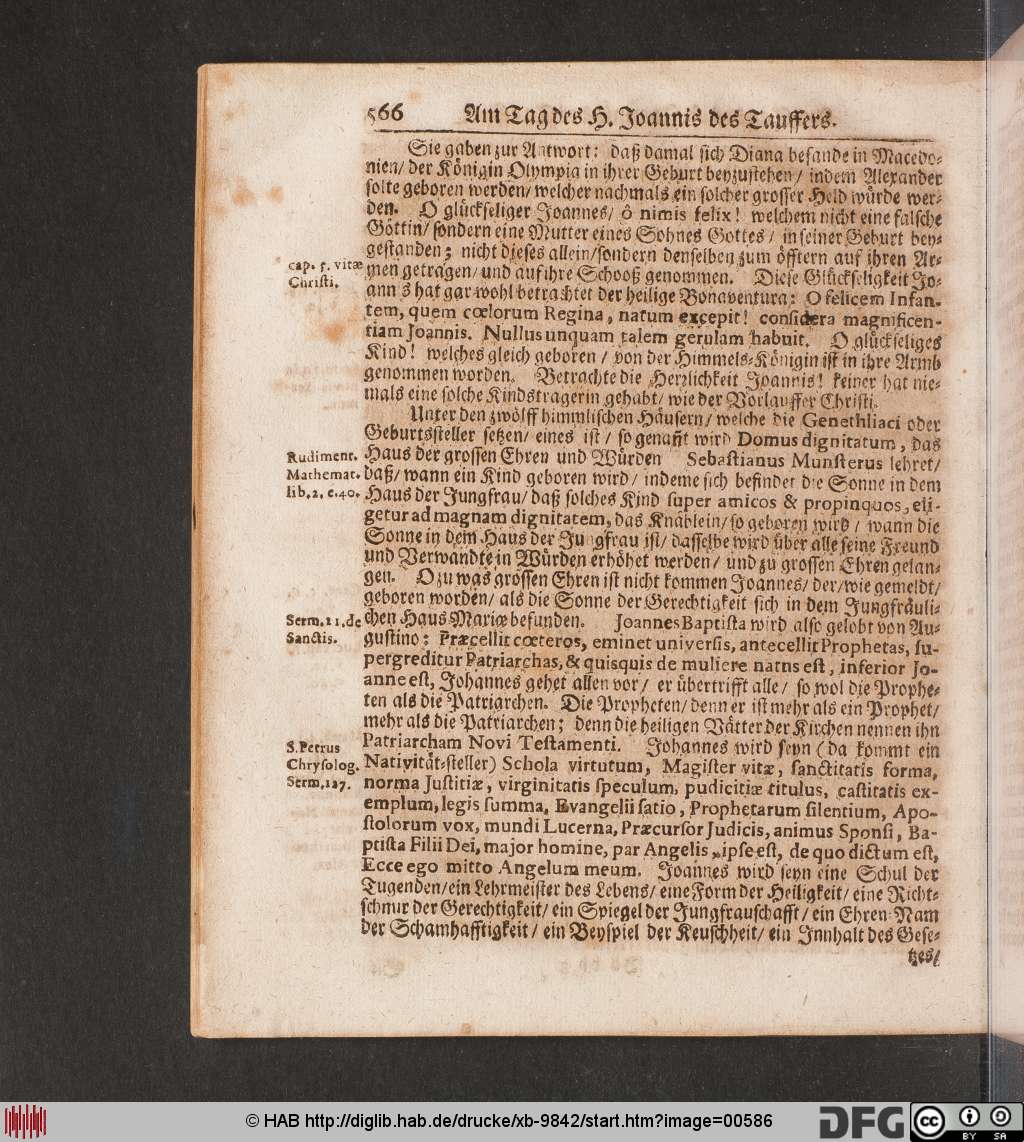 566 Am Tag des H. Joannis des Tauffers.
Sie gaben zur Antwort: daß damal sich Diana befande in Macedo-
nien/ der Königin Olympia in ihrer Geburt beyzustehen/ indem Alexander
solte geboren werden/ welcher nachmals ein solcher grosser Held würde wer-
den. O glückseliger Joannes/ ô nimis felix! welchem nicht eine falsche
Göttin/ sondern eine Mutter eines Sohnes Gottes/ in seiner Geburt bey-
gestanden; nicht dieses allein/ sondern denselben zum öfftern auf ihren Ar-
cap. 5. vitæ
Christi.
men getragen/ und auf ihre Schooß genommen. Diese Glückseligkeit Jo-
annis hat gar wohl betrachtet der heilige Bonaventura: O felicem Infan-
tem, quem cœlorum Regina, natum excepit! considera magnificen-
tiam Joannis. Nullus unquam talem gerulam habuit. O glückseliges
Kind! welches gleich geboren/ von der Himmels-Königin ist in ihre Armb
genommen worden. Betrachte die Herrlichkeit Joannis! keiner hat nie-
mals eine solche Kindstragerin gehabt/ wie der Vorlauffer Christi.
Unter den zwölff himmlischen Häusern/ welche die Genethliaci oder
Geburtssteller setzen/ eines ist/ so genañt wird Domus dignitatum, das
Rudiment.
Mathemat.
lib. 2. c. 40.
Haus der grossen Ehren und Würden Sebastianus Munsterus lehret/
daß/ wann ein Kind geboren wird/ indeme sich befindet die Sonne in dem
Haus der Jungfrau/ daß solches Kind super amicos & propinquos, eli-
getur ad magnam dignitatem, das Knäblein/ so geboren wird/ wann die
Sonne in dem Haus der Jungfrau ist/ dasselbe wird über alle seine Freund
und Verwandte in Würden erhöhet werden/ und zu grossen Ehren gelan-
gen. O zu was grossen Ehren ist nicht kommen Joannes/ der/ wie gemeldt/
geboren worden/ als die Sonne der Gerechtigkeit sich in dem Jungfräuli-
Serm. 21. de
Sanctis.
chen Haus Mariæ befunden. Joannes Baptista wird also gelobt von Au-
gustino: Præcellit cœteros, eminet universis, antecellit Prophetas, su-
pergreditur Patriarchas, & quisquis de muliere natns est, inferior Jo-
anne est, Johannes gehet allen vor/ er übertrifft alle/ so wol die Prophe-
ten als die Patriarchen. Die Propheten/ denn er ist mehr als ein Prophet/
mehr als die Patriarchen; denn die heiligen Vätter der Kirchen nennen ihn
S. Petrus
Chrysolog.
Serm. 127.
Patriarcham Novi Testamenti. Johannes wird seyn (da kommt ein
Nativität-steller) Schola virtutum, Magister vitæ, sanctitatis forma,
norma Justitiæ, virginitatis speculum, pudicitiæ titulus, castitatis ex-
emplum, legis summa, Evangelii satio, Prophetarum silentium, Apo-
stolorum vox, mundi Lucerna, Præcursor Judicis, animus Sponsi, Ba-
ptista Filii Dei, major homine, par Angelis, ipse est, de quo dictum est,
Ecce ego mitto Angelum meum. Joannes wird seyn eine Schul der
Tugenden/ ein Lehrmeister des Lebens/ eine Form der Heiligkeit/ eine Richt-
schnur der Gerechtigkeit/ ein Spiegel der Jungfrauschafft/ ein Ehren-Nam
der Schamhafftigkeit/ ein Beyspiel der Keuschheit/ ein Innhalt des Gese-
tzes/
© HAB http://diglib.hab.de/drucke/xb-9842/start.htm?image=00586
DFG cc BY SA